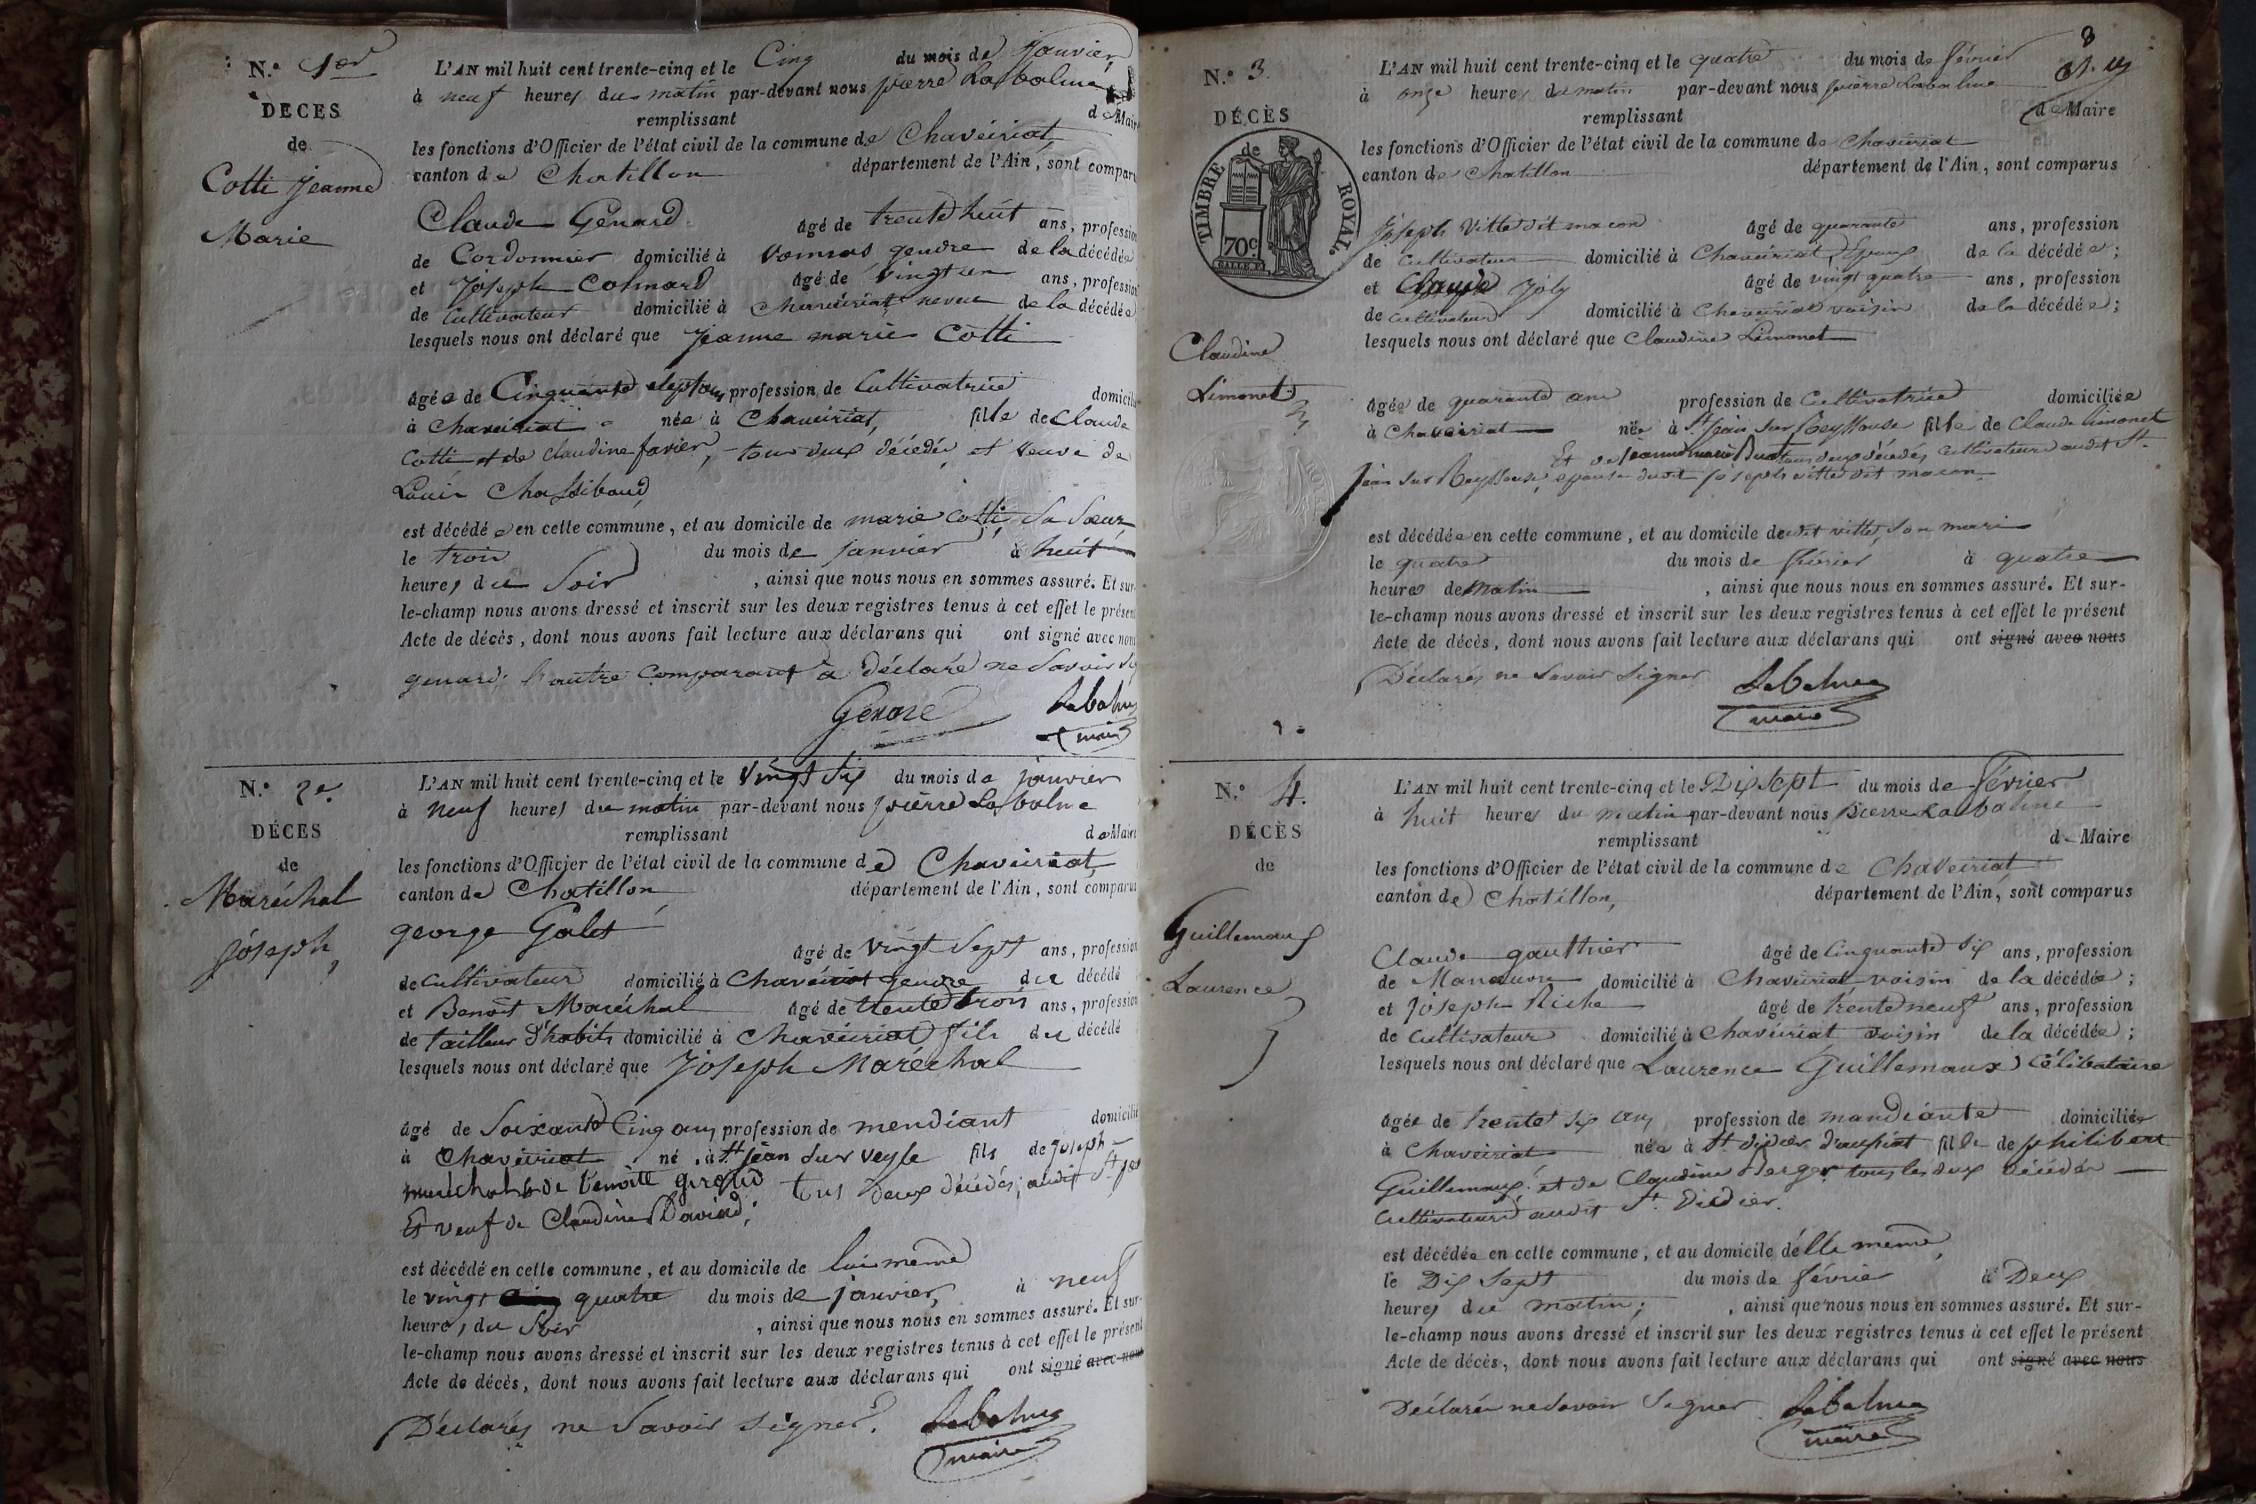 N.o 1er
DECES
de
Cotti Jeanne
Marie
L'AN mil huit cent trente-cinq et le Cinq du mois de Janvier
à neuf heures du matin par-devant nous pierre Labalme
remplissant d Maire
les fonctions d'Officier de l'état civil de la commune de Chaveiriat,
canton de Chatillon département de l'Ain, sont compar
Claude Genard âgé de trente huit ans, profession
de Cordonnier domicilié à vonnas, gendre de la décédée
et Joseph Colmard âgé de vingt un ans, profession
de Cultivateur domicilié à Chaveiriat neveu de la décédée
lesquels nous ont déclaré que Jeanne marie Cotti
âgée de Cinquante sept ans, profession de Cultivatrice domicili
à Chaveiriat née à Chaveiriat, fille de Claude
Cotti et de claudine favier, tous deux décédés, et veuve de
Louis Chassibaud,
est décédée en cette commune, et au domicile de marie Cotti, sa sœur,
le trois du mois de janvier à huit
heures du soir, ainsi que nous nous en sommes assuré. Et sur-
le-champ nous avons dressé et inscrit sur les deux registres tenus à cet effet le présent
Acte de décès, dont nous avons fait lecture aux déclarans qui ont signé avec nous
genard. l'autre comparant a déclaré ne savoir
Genard Labalme
maire
N.o 2e.
DÉCES
de
Maréchal
joseph,
L'AN mil huit cent trente-cinq et le vingt six du mois de janvier
à neuf heures du matin par-devant nous pierre Labalme
remplissant de Maire
les fonctions d'Officier de l'état civil de la commune de Chaveiriat,
canton de Chatillon, département de l'Ain, sont comparus
george Galet
âgé de vingt sept ans, profession
de Cultivateur domicilié à Chaveiriat gendre du décédé
et Benoît Maréchal âgé de trente trois ans, profession
de tailleur d'habits domicilié à Chaveiriat fils du décédé
lesquels nous ont déclaré que Joseph Maréchal
âgé de soixante Cinq ans, profession de mendiant domicilié
à Chaveiriat né à St jean sur veyle fils de joseph
maréchal & de benoite giroud tous deux décédés, audit St jean
Et veuf de Claudine David;
est décédé en cette commune, et au domicile de lui même
le vingt quatre du mois de janvier, à neuf
heures du soir, ainsi que nous nous en sommes assuré. Et sur-
le-champ nous avons dressé et inscrit sur les deux registres tenus à cet effet le présent
Acte de décès, dont nous avons fait lecture aux déclarans qui ont signé avec nous
Déclarés ne savoir signer. Labalme
maire
8
N.o 3.
DÉCÈS
de
TIMBRE ROYAL.
70c.
Claudine
Limonet
L'AN mil huit cent trente-cinq et le quatre du mois de février
à onze heures du matin par-devant nous pierre Labalme
remplissant de Maire
les fonctions d'Officier de l'état civil de la commune de Chaveiriat
canton de Chatillon département de l'Ain, sont comparus
joseph Vitte dit macon âgé de quarante ans, profession
de Cultivateur domicilié à Chaveiriat, Epoux de la décédée;
et Claude joly âgé de vingt quatre ans, profession
de Cultivateur domicilié à Chaveiriat voisin de la décédée;
lesquels nous ont déclaré que Claudine Limonet
âgée de quarante ans profession de Cultivatrice domiciliée
à Chaveiriat née à St jean sur Reyssouse fille de Claude limonet
Et de jeanne marie tous deux décédés Cultivateurs audit St.
jean sur Reyssouse, epouse dudit joseph vitte dit macon
est décédée en cette commune, et au domicile dudit vitte, son mari
le quatre du mois de février à quatre
heures de matin, ainsi que nous nous en sommes assuré. Et sur-
le-champ nous avons dressé et inscrit sur les deux registres tenus à cet effet le présent
Acte de décès, dont nous avons fait lecture aux déclarans qui ont signé avec nous
Déclarés ne savoir signer Labalme
maire
N.o 4.
DÉCÈS
de
Guillemaux
Laurence
L'AN mil huit cent trente-cinq et le Dix sept du mois de février
à huit heures du matin par-devant nous Pierre Labalme
remplissant de Maire
les fonctions d'Officier de l'état civil de la commune de Chaveiriat
canton de Chatillon, département de l'Ain, sont comparus
Claude gauthier âgé de Cinquante six ans, profession
de Manœuvre domicilié à Chaveiriat voisin de la décédée;
et Joseph Niche âgé de trente neuf ans, profession
de Cultivateur domicilié à Chaveiriat voisin de la décédée;
lesquels nous ont déclaré que Laurence Guillemaux Célibataire
âgée de trente six ans profession de mandiante domiciliée
à Chaveiriat née à St didier d'aussiat fille de philibert
Guillemaux, et de Claudine Berger tous les deux décédés
Cultivateurs audit St. Didier.
est décédée en cette commune, et au domicile d'elle même,
le Dix sept du mois de février à Deux
heures du matin;, ainsi que nous nous en sommes assuré. Et sur-
le-champ nous avons dressé et inscrit sur les deux registres tenus à cet effet le présent
Acte de décès, dont nous avons fait lecture aux déclarans qui ont signé avec nous
Déclarés ne savoir signer Labalme
maire